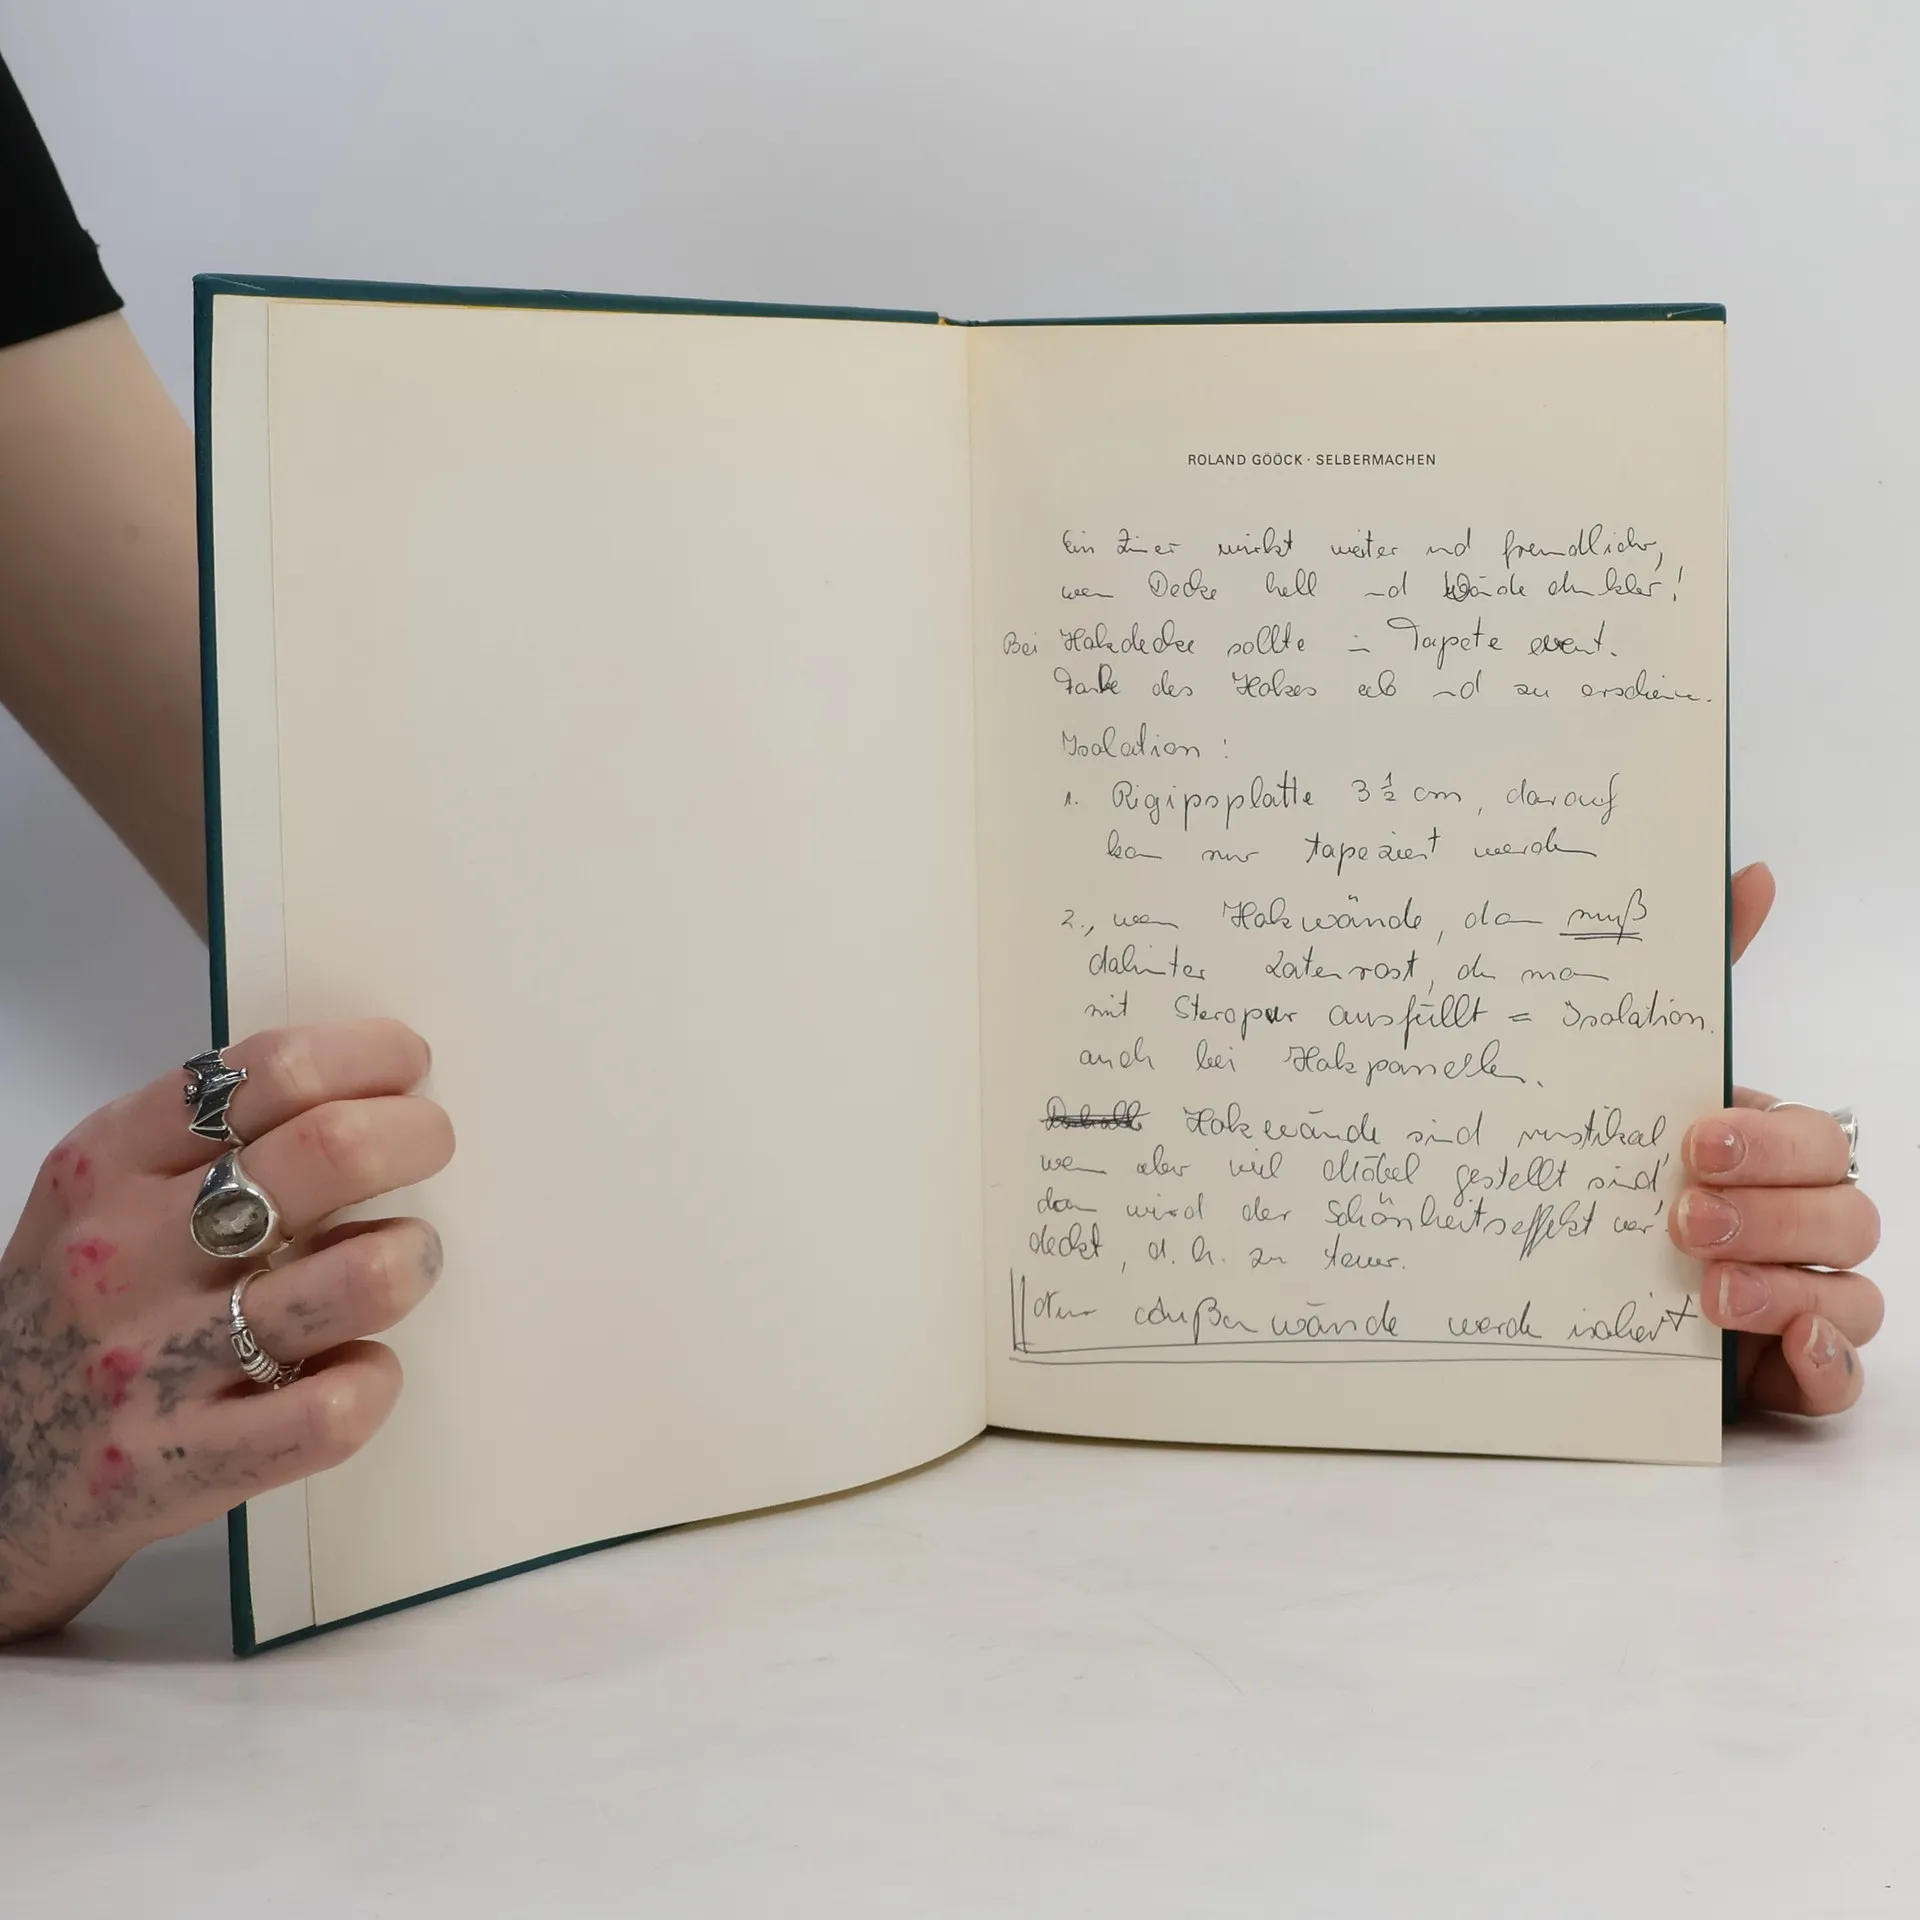 ROLAND GÖÖCK · SELBERMACHEN
Ein Zimer wirkt weiter und freundlicher,
wen Decke hell und Wände dunkler!
Bei Holzdecke sollte in Tapete event.
Farbe des Holzes ab und zu erscheinen.
Isolation :
1. Rigipsplatte 3 ½ cm, darauf
kan nur tapeziert werden
2., wen Holzwände, dan muß
dahinter Latenrost, den man
mit Steropur ausfüllt = Isolation.
auch bei Holzpanellen.
Holzwände sind rustikal,
wen aber viel Möbel gestellt sind,
dan wird der Schönheitseffekt ver-
deckt, d. h. zu teuer.
Nur Außenwände werden isoliert